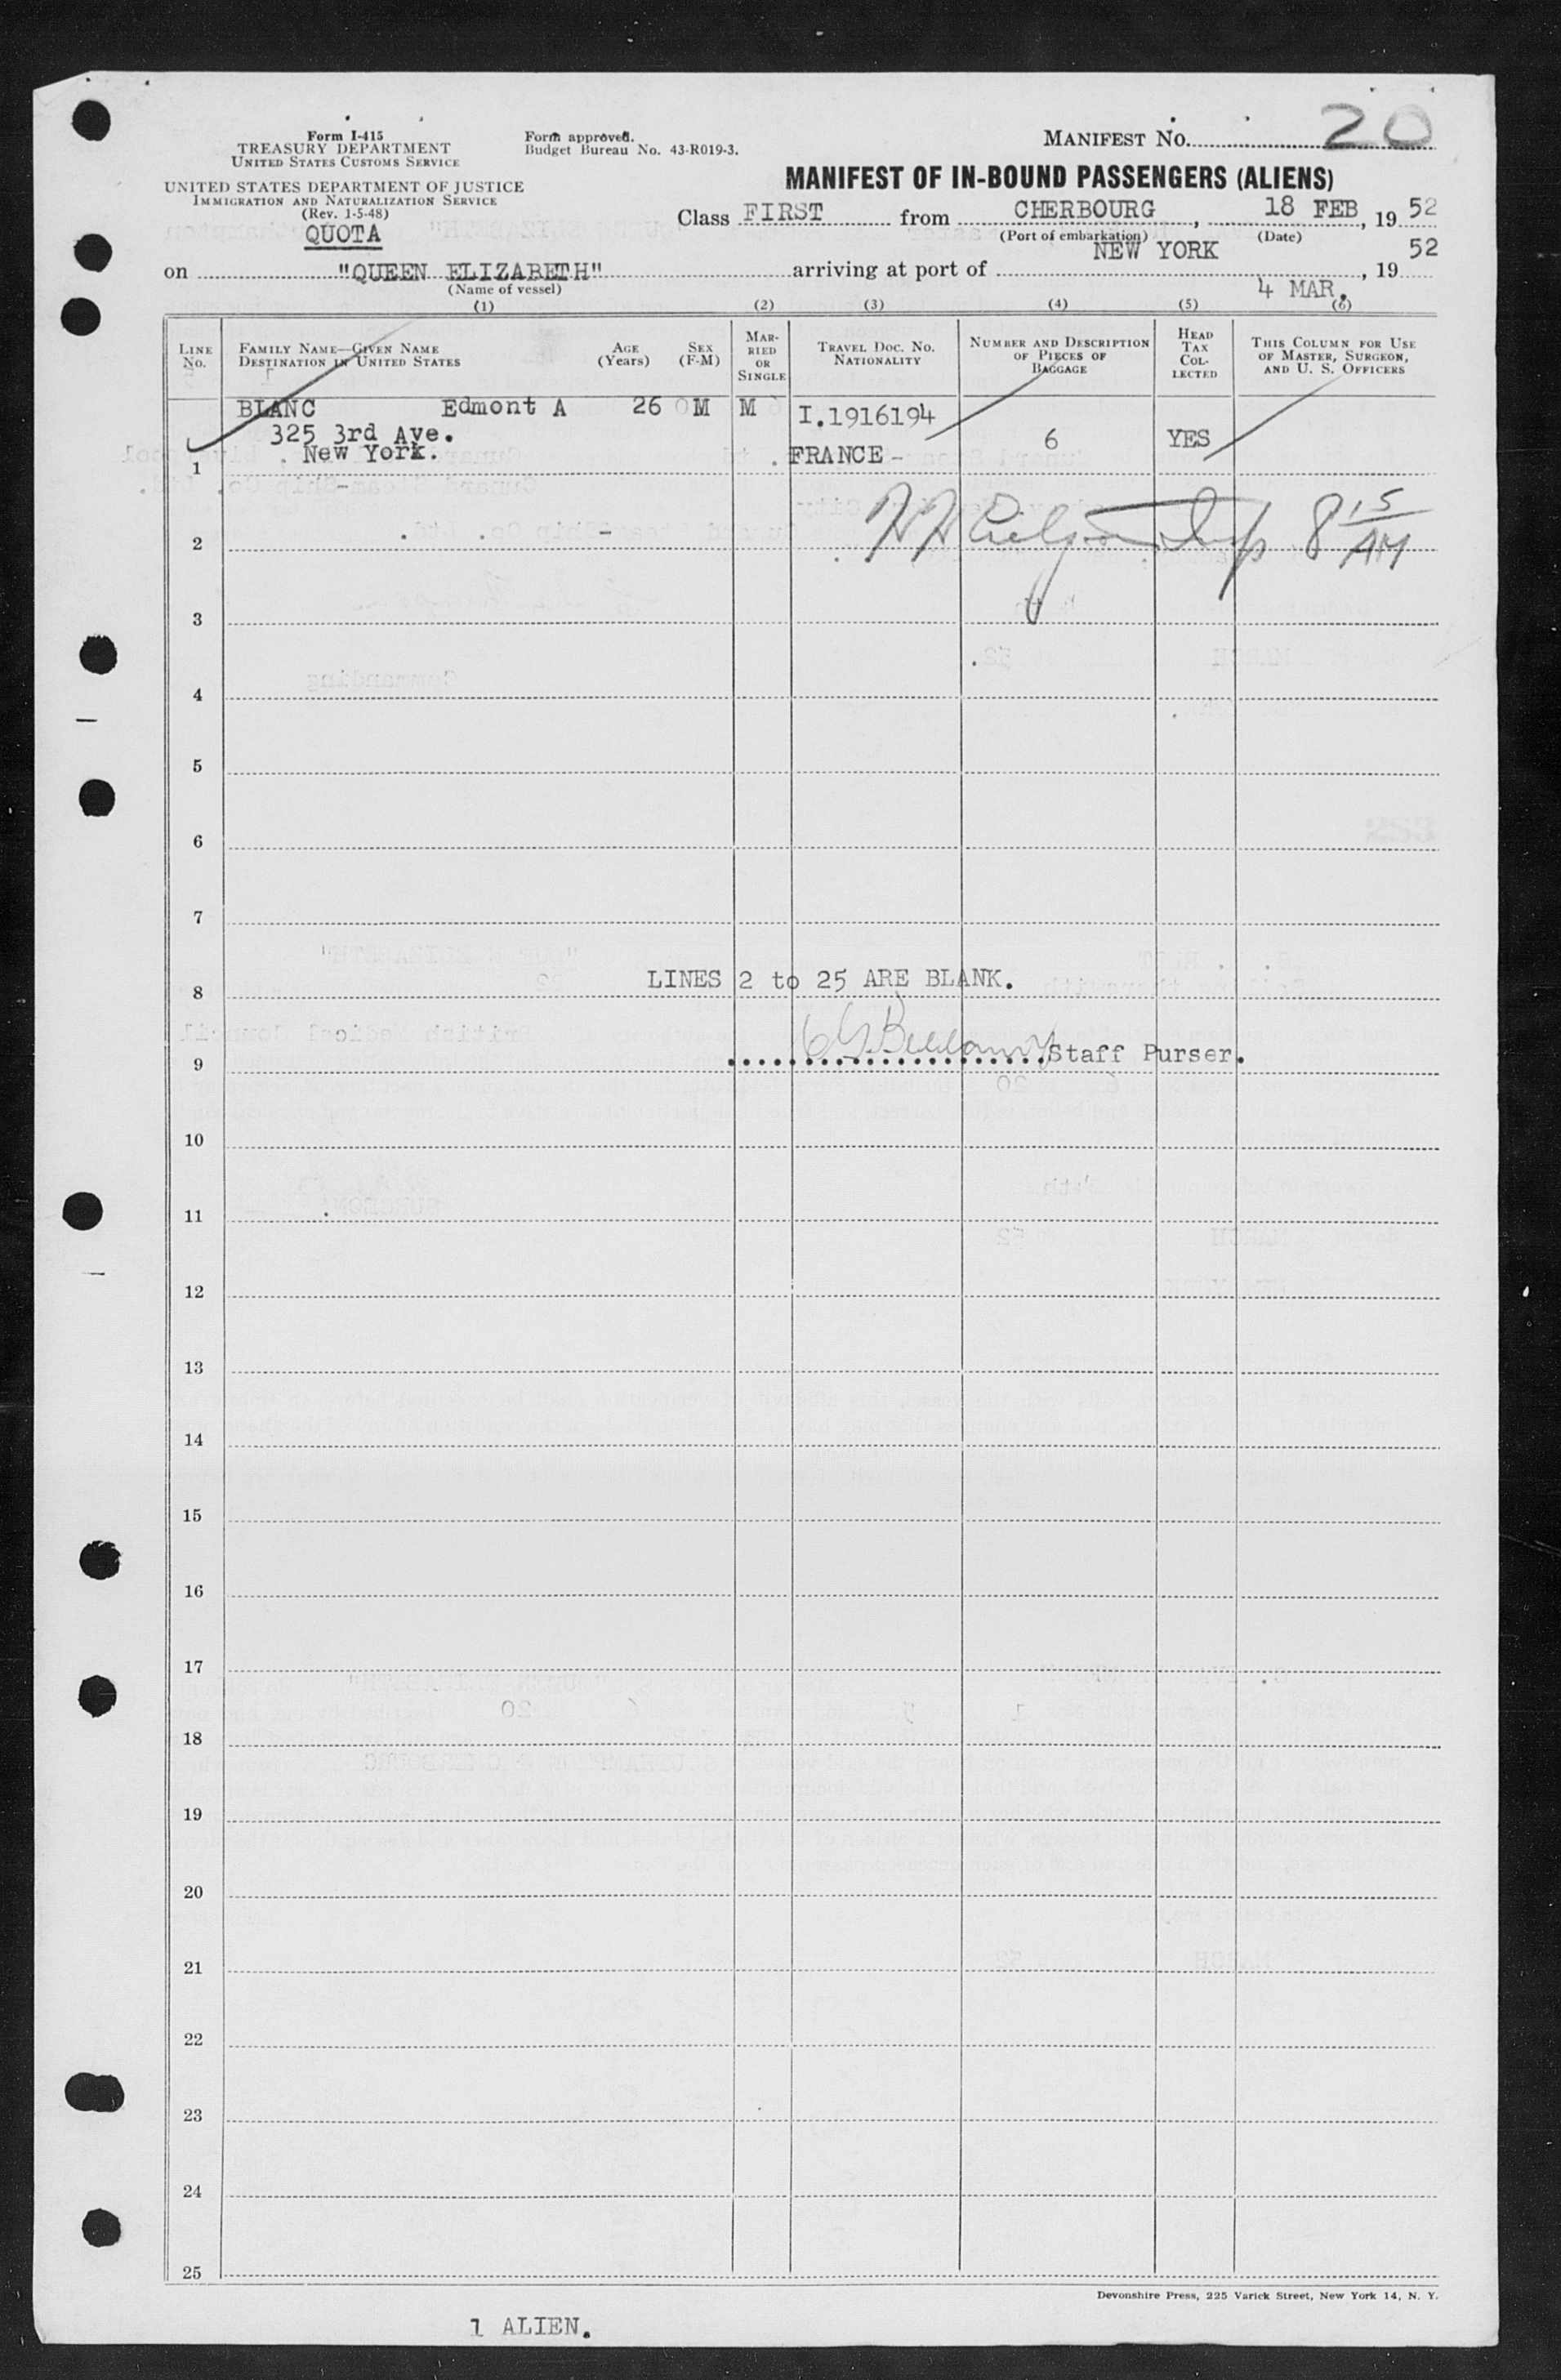 Form I-415
TREASURY DEPARTMENT
UNITED STATES CUSTOMS SERVICE
UNITED STATES DEPARTMENT OF JUSTICE
IMMIGRATION AND NATURALIZATION SERVICE
(Rev. 1-5-48)
QUOTA
Form approved.
Budget Bureau No. 43-R019-3.
MANIFEST NO. 20
MANIFEST OF IN-BOUND PASSENGERS (ALIENS)
Class FIRST from CHERBOURG, 18 FEB, 19 52
(Port of embarkation) (Date)
on "QUEEN ELIZABETH" arriving at port of NEW YORK, 19 52
(Name of vessel) 4 MAR.
(1) (2) (3) (4) (5) (6)
LINE NO.
FAMILY NAME—GIVEN NAME
DESTINATION IN UNITED STATES
AGE (Years)
SEX (F-M)
MARRIED OR SINGLE
TRAVEL DOC. NO.
NATIONALITY
NUMBER AND DESCRIPTION OF PIECES OF BAGGAGE
HEAD TAX COLLECTED
THIS COLUMN FOR USE OF MASTER, SURGEON, AND U. S. OFFICERS
BLANC Edmont A 26 M M I.1916194
325 3rd Ave. 6 YES
1 New York. FRANCE -
8 15 AM
2
3
4
5
6
7
8 LINES 2 to 25 ARE BLANK.
9 Staff Purser.
10
11
12
13
14
15
16
17
18
19
20
21
22
23
24
25
Devonshire Press, 225 Varick Street, New York 14, N. Y.
1 ALIEN.